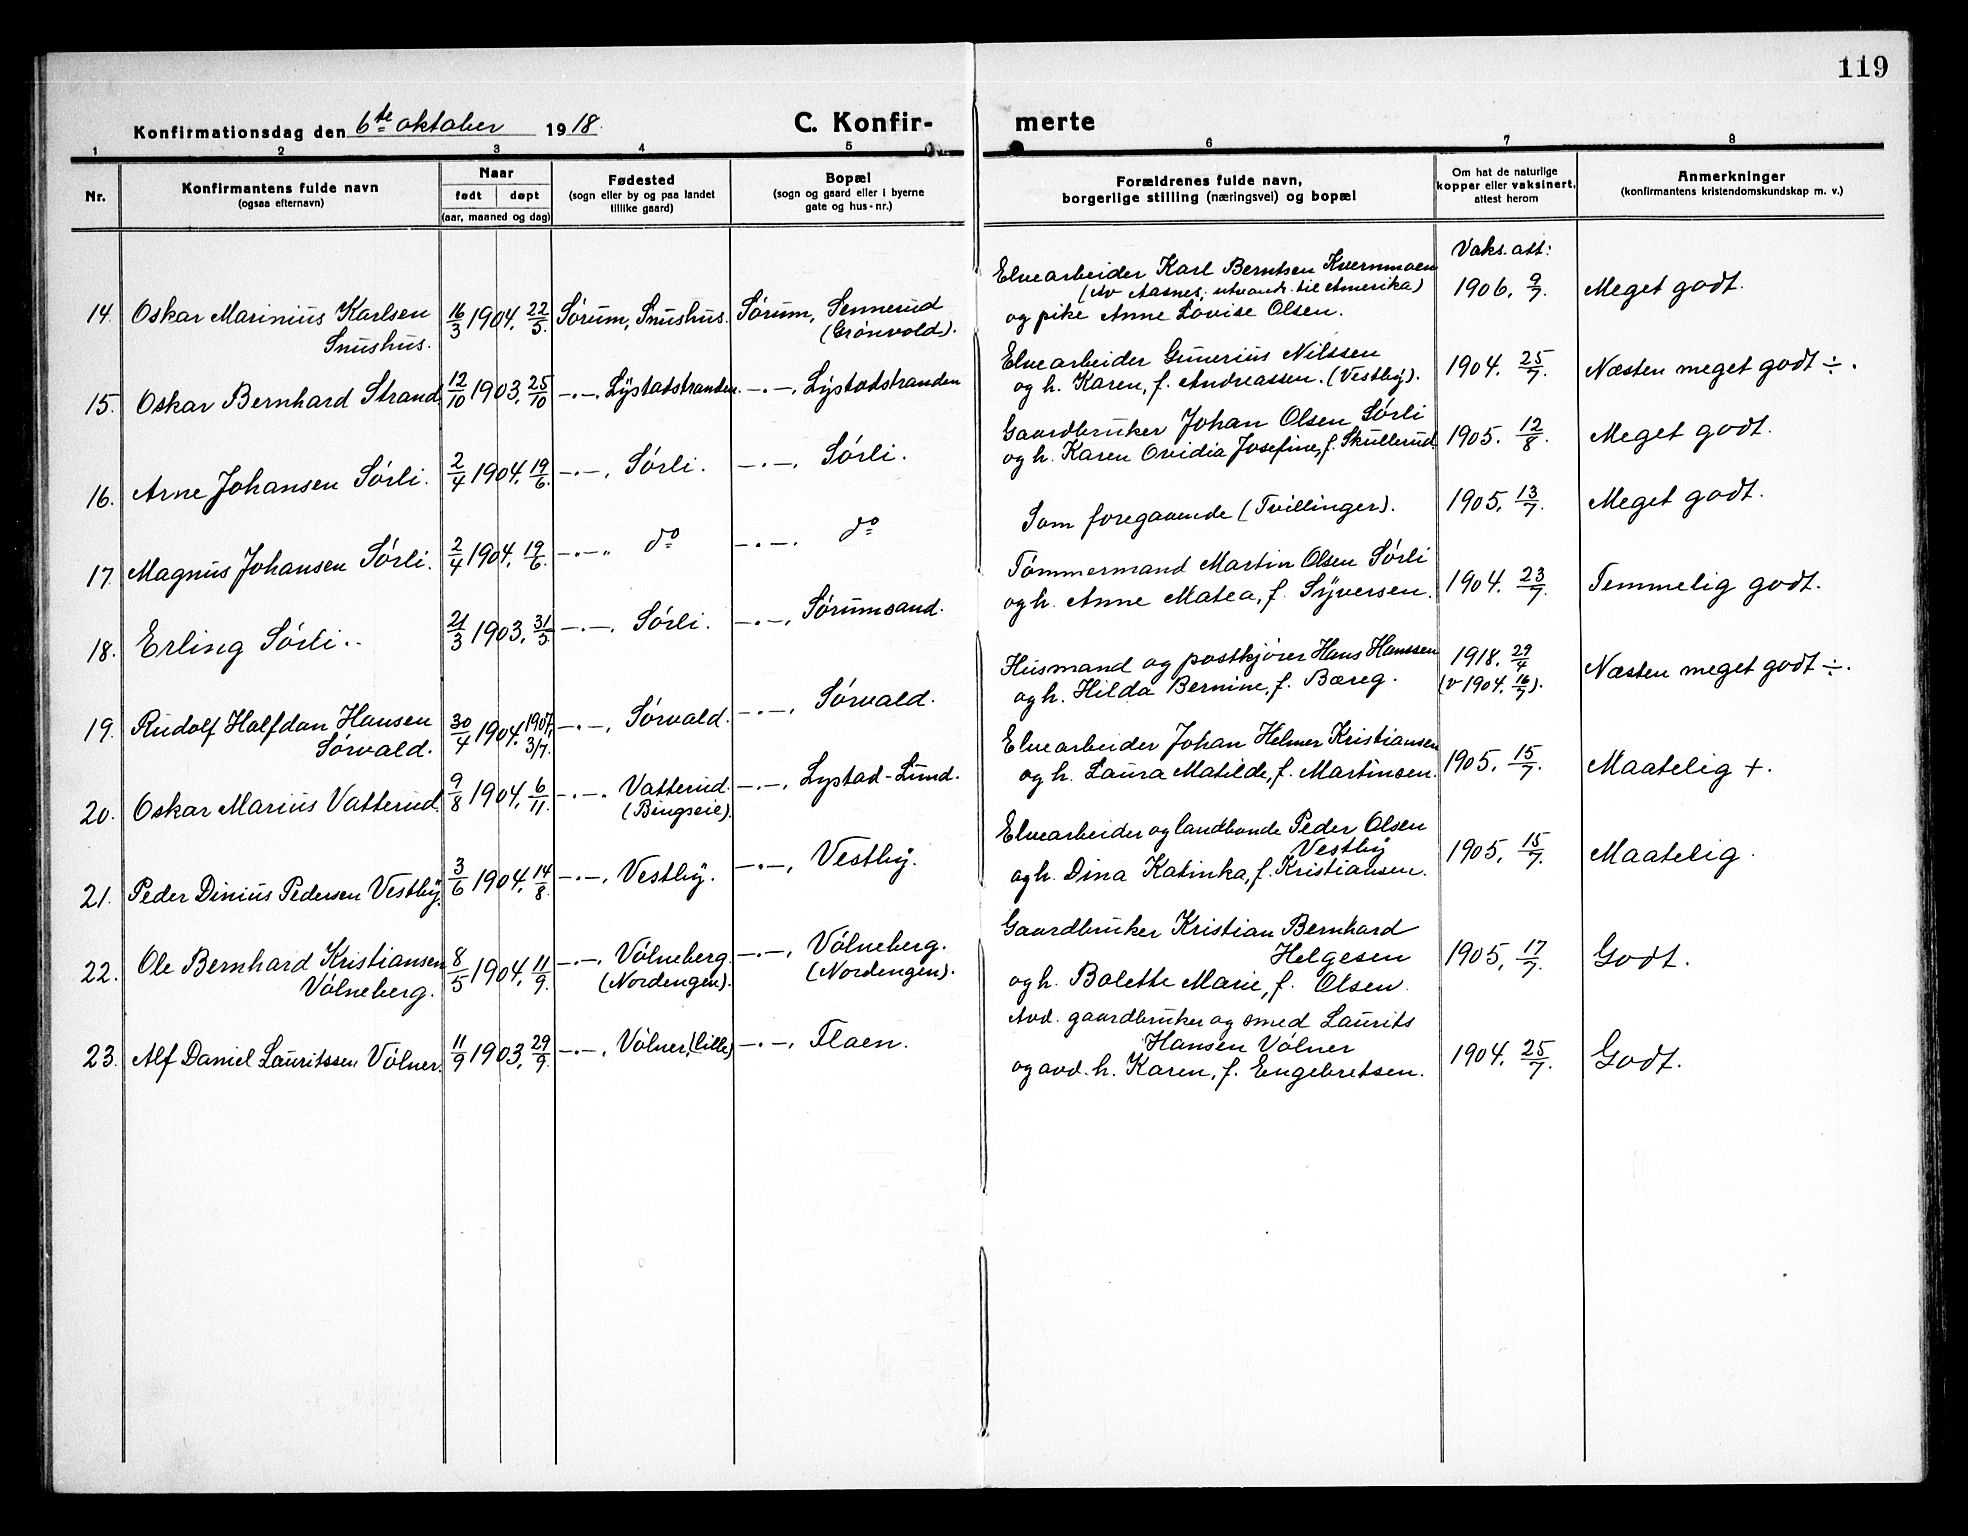 119
Konfirmationsdag den 6te oktober 1918. C. Konfirmerte
1 2 3 4 5 6 7 8
Nr. Konfirmantens fulde navn (ogsaa efternavn) Naar født døpt (aar, maaned og dag) Fødested (sogn eller by og paa landet tillike gaard) Bopæl (sogn og gaard eller i byerne gate og hus-nr.) Forældrenes fulde navn, borgerlige stilling (næringsvei) og bopæl Om hat de naturlige kopper eller vaksinert, attest herom Anmerkninger (konfirmantens kristendomskundskap m. v.)
Vaks. att:
14. Oskar Marinius Karlsen Snushus. 16/3 1904. 22/5. Sørum, Snushus. Sørum, Sennerud (Grønvold). Elvearbeider Karl Berntsen Kvernmoen (Av Aasnes, utvandr. til Amerika) og pike Anne Lovise Olsen. 1906. 9/7. Meget godt.
15. Oskar Bernhard Strand 12/10 1903. 25/10 —.—. Lystadstranden. —.—. Lystadstranden Elvearbeider Gunerius Nilssen og h. Karen, f. Andreassen. (Vestby). 1904. 25/7. Næsten meget godt ÷.
16. Arne Johansen Sørli. 2/4 1904. 19/6. —.—. Sørli. —.—. Sørli. Gaardbruker Johan Olsen Sørli og h. Karen Ovidia Josefine, f. Skullerud. 1905. 12/8. Meget godt.
17. Magnus Johansen Sørli. 2/4 1904. 19/6. —.—. do —.—. do Som foregaaende (Tvillinger). 1905. 13/7. Meget godt.
18. Erling Sørli. 21/3 1903. 31/5 —.—. Sørli. —.—. Sørumsand. Tømmermand Martin Olsen Sørli og h. Anne Matea, f. Syversen. 1904. 23/7. Temmelig godt.
19. Rudolf Halfdan Hansen Sørvald. 30/4 1904. 1907, 3/7. —.—. Sørvald. —.—. Sørvald. Husmand og postkjører Hans Hanssen og h. Hilda Bernine, f. Bæreg. 1918. 29/4 (v 1904. 16/7). Næsten meget godt ÷.
20. Oskar Marius Vatterud. 9/8 1904. 6/11. —.—. Vatterud. (Bingseie). —.—. Lystad-Lund. Elvearbeider Johan Helmer Kristiansen og h. Laura Matilde, f. Martinsen. 1905. 15/7. Maatelig +.
21. Peder Dinius Pedersen Vestby. 3/6 1904. 14/8. —.—. Vestby. —.—. Vestby. Elvearbeider og landbonde Peder Olsen Vestby og h. Dina Katinka, f. Kristiansen. 1905. 15/7. Maatelig.
22. Ole Bernhard Kristiansen Vølneberg. 8/5 1904. 11/9. —.—. Vølneberg. (Nordengen). —.—. Vølneberg. (Nordengen). Gaardbruker Kristian Bernhard Helgesen og h. Bolette Marie, f. Olsen. 1905. 17/7. Godt.
23. Alf Daniel Lauritssen Vølner. 11/9 1903. 29/9. —.—. Vølner, (Lille) —.—. Flaen. Avd. gaardbruker og smed Laurits Hansen Vølner og avd. h. Karen, f. Engebretsen. 1904. 25/7. Godt.